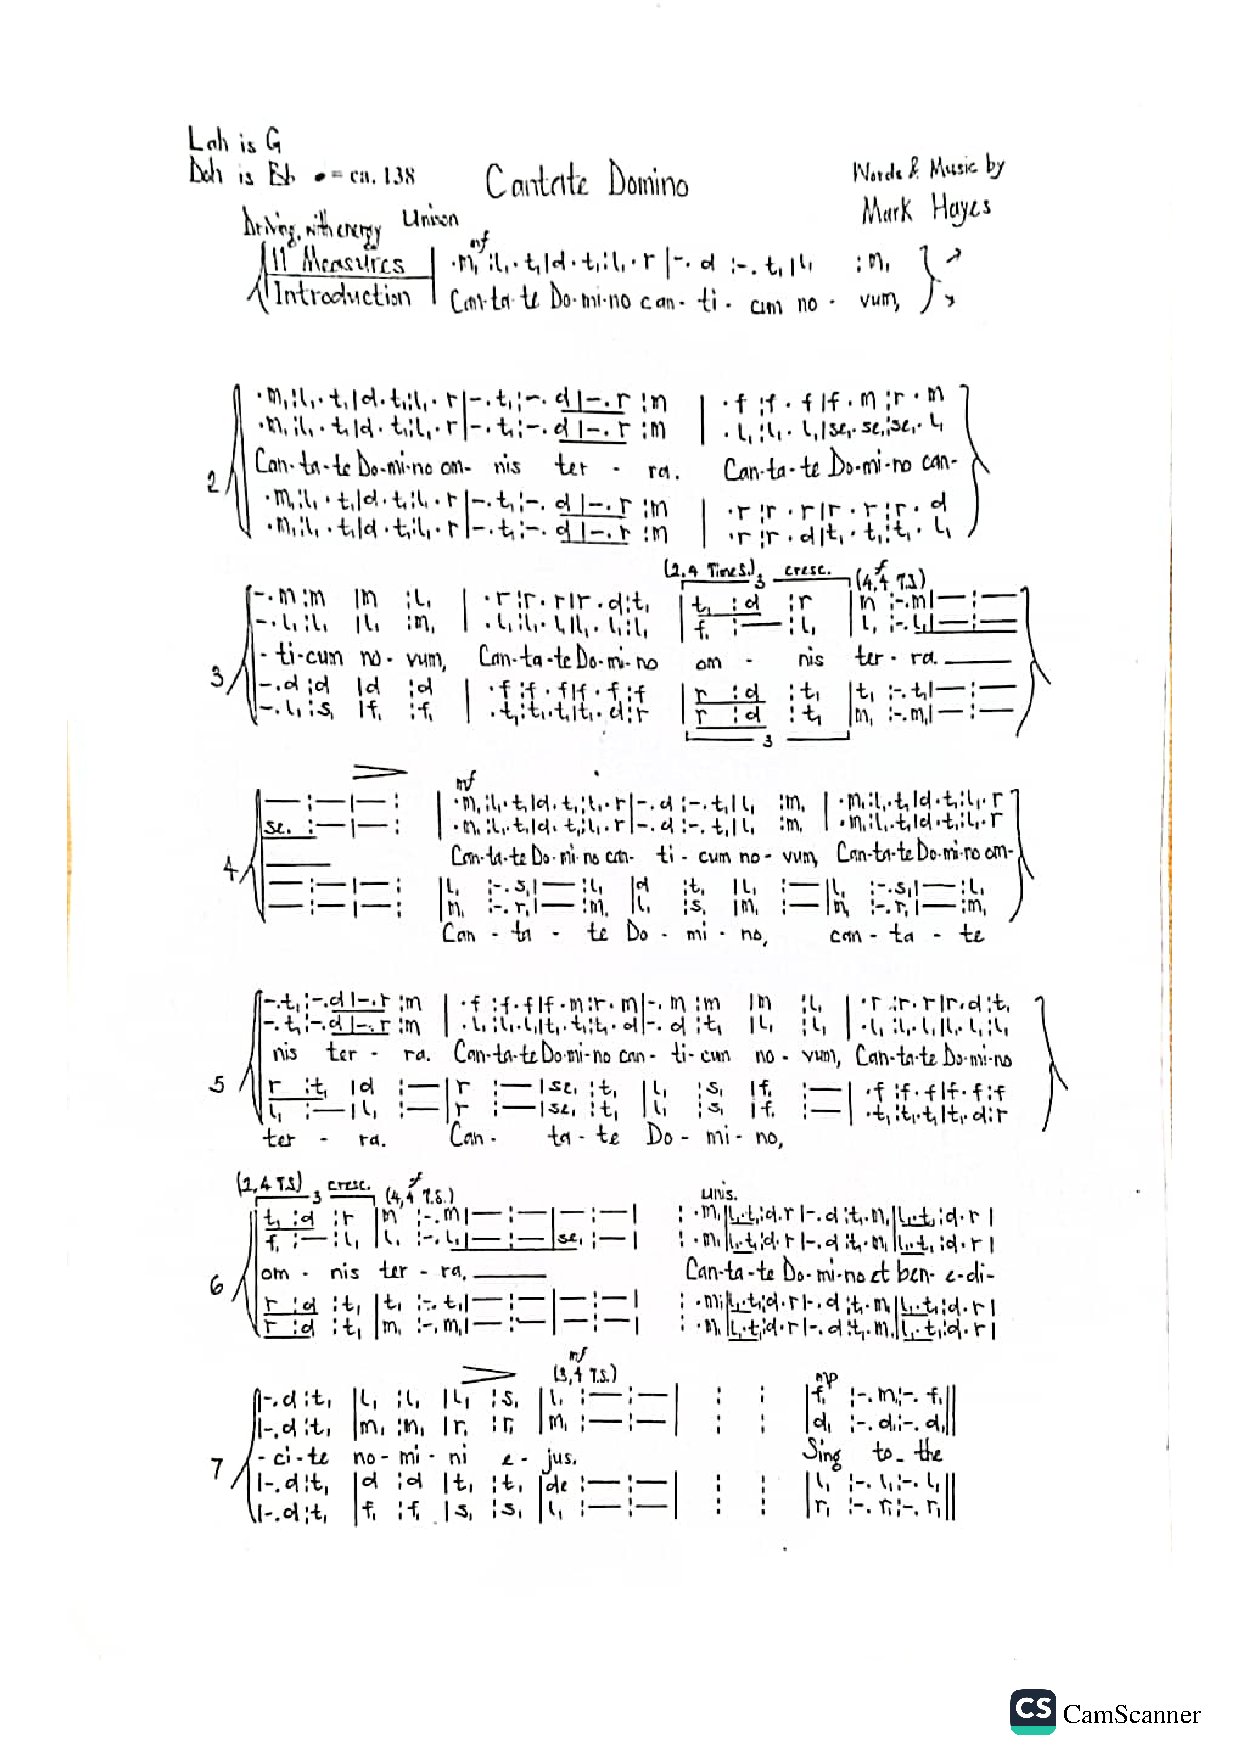 Lah is G
Doh is Eb. • = ca. 138
Cantate Domino
Words & Music by
Mark Hayes
Driving, with energy
Unison
mf
11 Measures | .m, :l, . t, |d . t, :l, . r |-. d :-. t, |l, :m,
Introduction
Can-ta-te Do-mi-no can- ti- cum no - vum,
.m, :l, . t, |d . t, :l, . r |-. t, :-. d |-. r :m | .f :f . f |f . m :r . m
.m, :l, . t, |d . t, :l, . r |-. t, :-. d |-. r :m | .l, :l, . l, |se, . se, :se, . l,
Can-ta-te Do-mi-no om- nis ter - ra. Can-ta-te Do-mi-no can-
2
.m, :l, . t, |d . t, :l, . r |-. t, :-. d |-. r :m | .r :r . r |r . r :r . d
.m, :l, . t, |d . t, :l, . r |-. t, :-. d |-. r :m | .r :r . d |t, . t, :t, . l,
(2,4 Times.) 3 cresc. (4,4 T.S) f
-. m :m |m :l, | .r :r . r |r . d :t, | t, :d :r |m :-.m |— :—
-. l, :l, |l, :m, | .l, :l, . l, |l, . l, :l, | f, :— :l, |l, :-.l, |— :—
- ti-cum no - vum, Can-ta-te Do-mi-no om - nis ter - ra.
3
-. d :d |d :d | .f :f . f |f . f :f | r :d :t, |t, :-.t, |— :—
-. l, :s, |f, :f, | .t, :t, . t, |t, . d :r | r :d :t, |m, :-.m, |— :—
3
mf
— :— |— : | .m, :l, . t, |d . t, :l, . r |-. d :-. t, |l, :m, | .m, :l, . t, |d . t, :l, . r
se, :— |— : | .m, :l, . t, |d . t, :l, . r |-. d :-. t, |l, :m, | .m, :l, . t, |d . t, :l, . r
Can-ta-te Do-mi-no can- ti - cum no - vum, Can-ta-te Do-mi-no om-
4
— :— |— : |l, :-. s, |— :l, |d :t, |l, :— |l, :-. s, |— :l,
— :— |— : |m, :-. r, |— :m, |l, :s, |m, :— |m, :-. r, |— :m,
Can - ta - te Do - mi - no, can - ta - te
-. t, :-. d |-. r :m | .f :f . f |f . m :r . m |-. m :m |m :l, | .r :r . r |r . d :t,
-. t, :-. d |-. r :m | .l, :l, . l, |t, . t, :t, . d |-. d :t, |l, :l, | .l, :l, . l, |l, . l, :l,
nis ter - ra. Can-ta-te Do-mi-no can- ti-cum no - vum, Can-ta-te Do-mi-no
5
r :t, |d :— |r :— |se, :t, |l, :s, |f, :— | .f :f . f |f . f :f
l, :— |l, :— |r :— |se, :t, |l, :s, |f, :— | .t, :t, . t, |t, . d :r
ter - ra. Can - ta - te Do - mi - no,
(2,4 T.S) 3 cresc. (4,4 T.S.) f
unis.
t, :d :r |m :-.m |— :— |— :— | : .m, |l, . t, :d . r |-. d :t, . m, |l, . t, :d . r |
f, :— :l, |l, :-.l, |— :— |se, :— | : .m, |l, . t, :d . r |-. d :t, . m, |l, . t, :d . r |
om - nis ter - ra, Can-ta-te Do-mi-no et ben- e-di-
6
r :d :t, |t, :-.t, |— :— |— :— | : .m, |l, . t, :d . r |-. d :t, . m, |l, . t, :d . r |
r :d :t, |m, :-.m, |— :— |— :— | : .m, |l, . t, :d . r |-. d :t, . m, |l, . t, :d . r |
mf
(3,4 T.S.)
mp
|-. d :t, |l, :l, |l, :s, |l, :— :— | : : |f, :-. m, :-. f, ||
|-. d :t, |m, :m, |r, :r, |m, :— :— | : : |d, :-. d, :-. d, ||
- ci - te no - mi - ni e - jus. Sing to the
7
|-. d :t, |d :d |t, :t, |de :— :— | : : |l, :-. l, :-. l, ||
|-. d :t, |f, :f, |s, :s, |l, :— :— | : : |r, :-. r, :-. r, ||
CS CamScanner